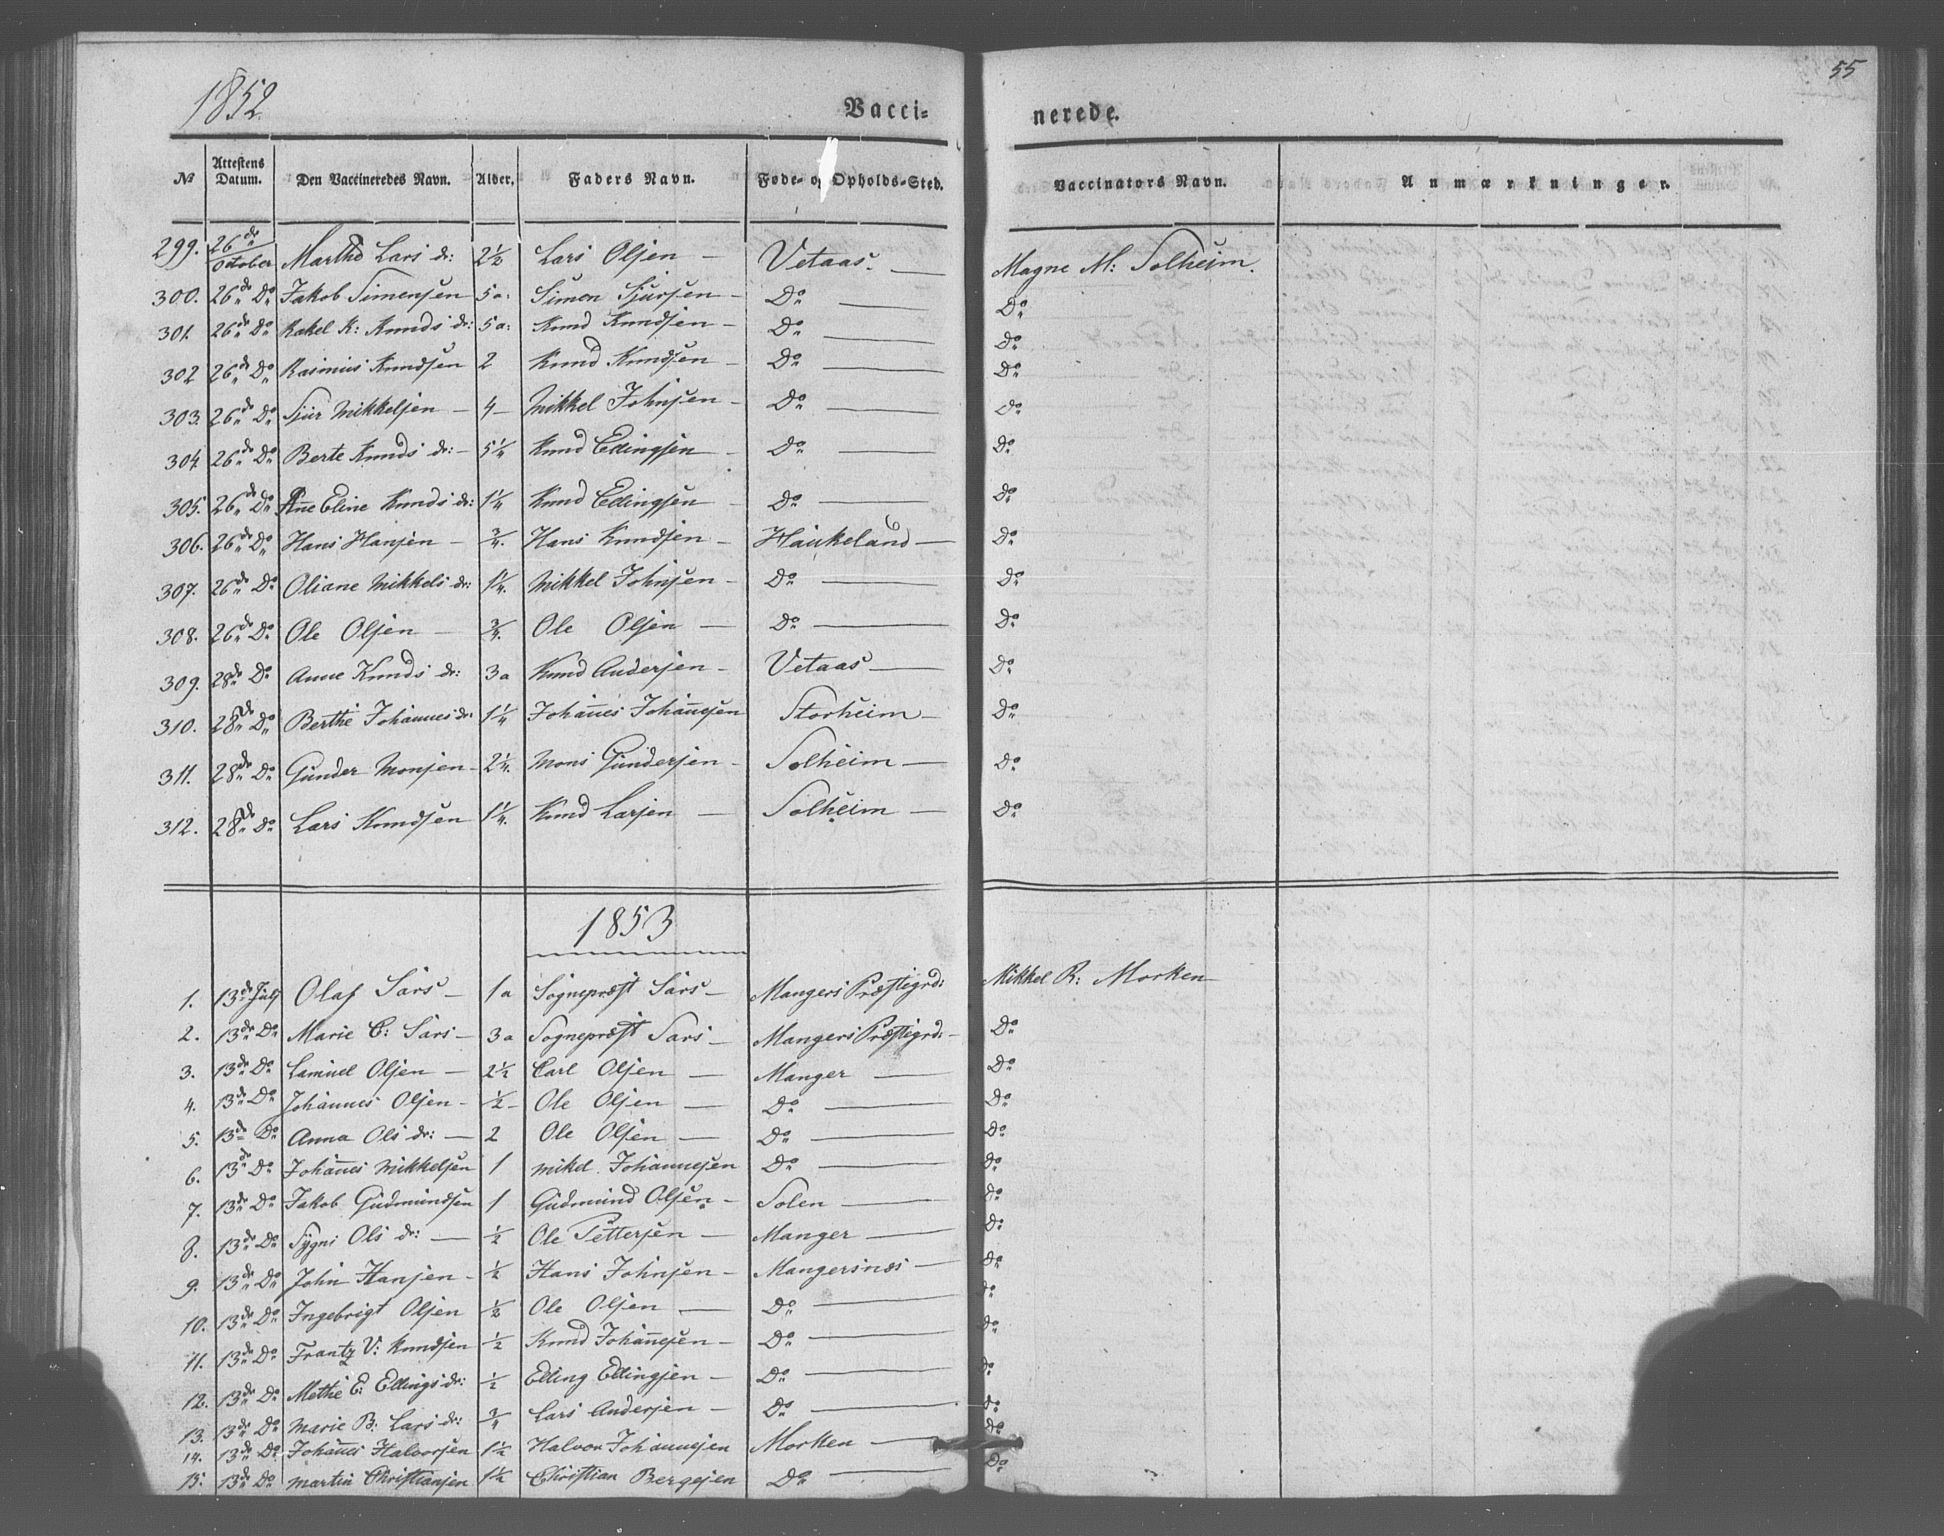 1852.
Vacci-nerede.
55
No Attestens Datum. Den Vaccineredes Navn. Alder. Faders Navn. Føde- og Opholds-Sted. Vaccinators Navn. Anmærkninger.
299. 26de October Marthe Lars dr: 2½ Lars Olsen — Vetaas. — Magne M: Solheim.
300. 26de Do Jakob Simensen 5a: Simon Sjursen — Do — Do
301. 26de Do Rakel K: Knuds dr: 5a: Knud Knudsen — Do — Do
302 26de Do Rasmus Knudsen 2 Knud Knudsen — Do — Do
303. 26de Do Sjur Mikkelsen — 4 — Mikkel Johnsen — Do — Do
304 26de Do Berte Knuds dr: — 5¼ Knud Ellingsen — Do — Do
305. 26de Do Ane Eline Knuds dr: 1¼ Knud Ellingsen — Do — Do
306. 26de Do Hans Hansen — ¾. Hans Knudsen — Haukeland — Do
307. 26de Do Oliane Mikkels dr: 1¼. Mikkel Johnsen — Do — Do
308. 26de Do Ole Olsen — ¾. Ole Olsen — Do — Do
309. 28de Do Anne Knuds dr: 3a Knud Andersen — Vetaas — Do
310. 28de Do Berthe Johannes dr: 1¼ Johanes Johanesen Storheim — Do
311. 28de Do Gunder Monsen — 2¼. Mons Gundersen — Solheim — Do
312. 28de Do Lars Knudsen 1¼. Knud Larsen — Solheim — Do
1853
1. 13de July Olaf Sars — 1a Sognepræst Sars — Mangers Præstegrd: Mikkel R: Morken
2. 13de Do Marie C: Sars — 3a Sognepræst Sars — Mangers Præstegrd: — Do
3. 13de Do Lamuel Olsen — 2½ Carl Olsen — Manger — Do
4. 13de Do Johannes Olsen — ½ — Ole Olsen — Do — Do
5. 13de Do Anna Ols dr: — 2 Ole Olsen — Do — Do
6. 13de Do Johanes Mikkelsen 1 Mikel Johannesen Do — Do
7. 13de Do Jakob Gudmundsen 1 Gudmund Olsen — Solen — Do
8. 13de Do Sygni Ols dr: — ½ Ole Pettersen — Manger — Do
9. 13de Do John Hansen — ½ Hans Johnsen — Mangersnæs — Do
10. 13de Do Ingebrigt Olsen ½ Ole Olsen — Do — Do
11. 13de Do Frantz V: Knudsen ½ Knud Johanesen — Do — Do
12. 13de Do Methe E: Ellings dr: ½ Elling Ellingsen — Do — Do
13. 13de Do Marie B: Lars dr: ¾ Lars Andersen — Do — Do
14. 13de Do Johanes Halvorsen 1½ Halvor Johannesen Morken — Do
15. 13de Do Martin Christiansen 1½ Christian Bergesen Do — Do